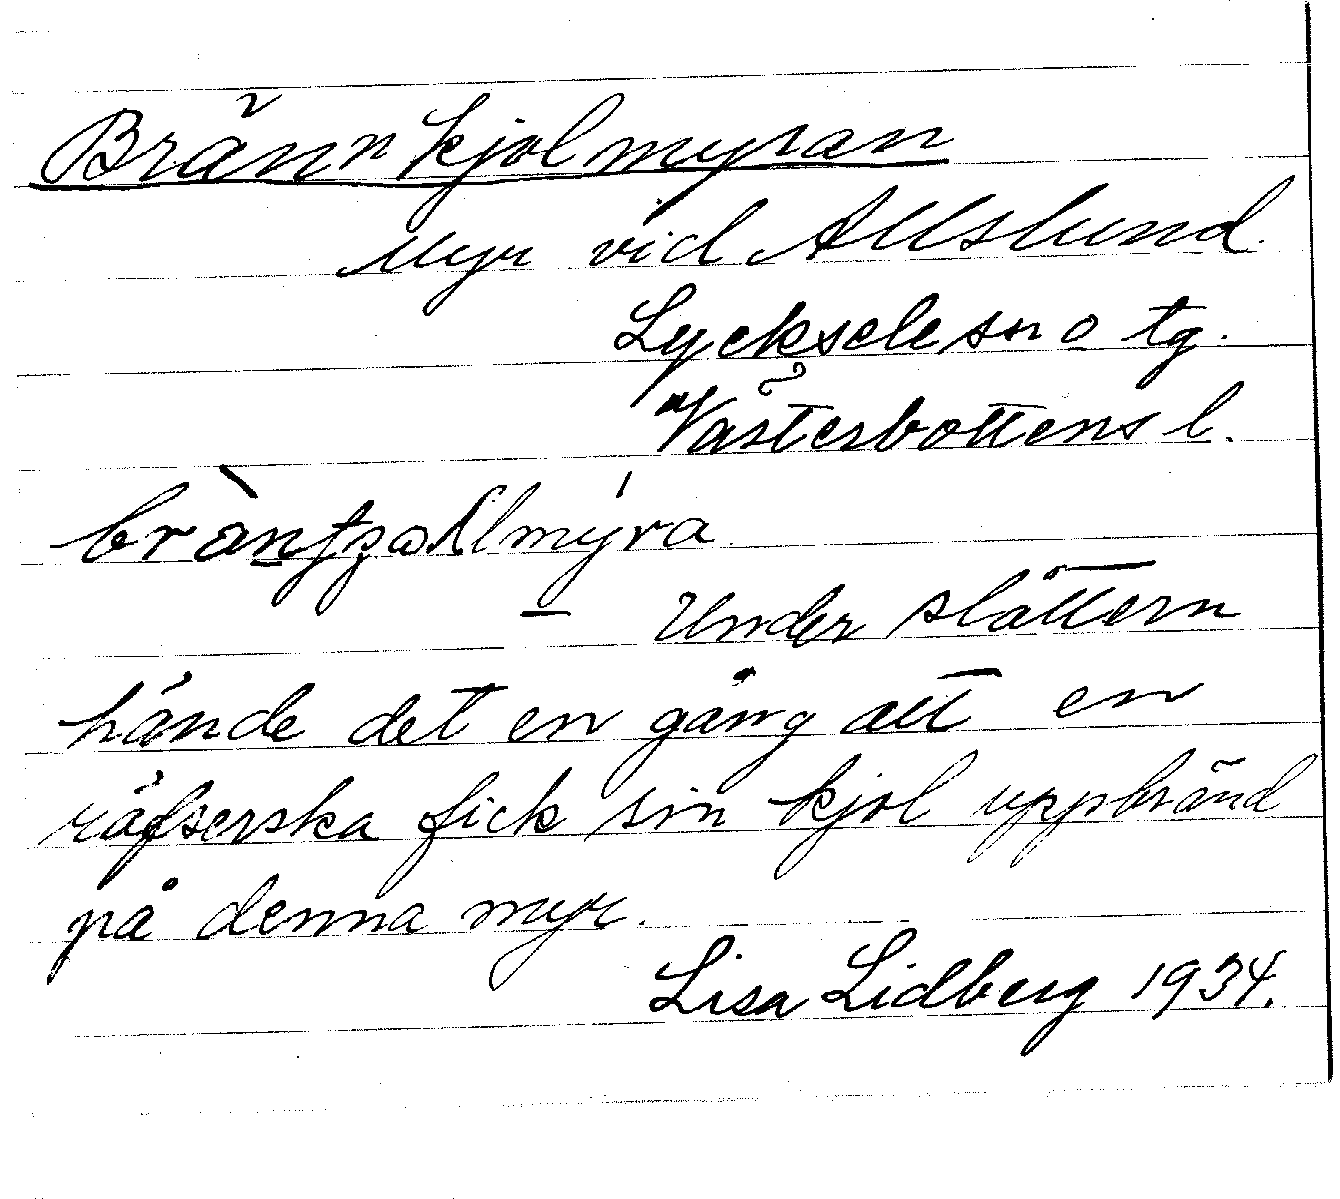 Brännkjolmyran
Myr vid Allslund.
Lycksele sn o tg.
Västerbottens l.
— Under slåttern
hände det en gång att en
räfserska fick sin kjol uppbränd
på denna myr.
Lisa Lidberg 1934.